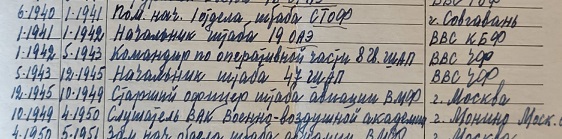 6-1940 1-1941 Пом. нач. 1 отдела штаба СТОФ г. Совгавань
1-1941 1-1942 Начальник штаба 19 ОАЭ ВВС КБФ
1-1942 5-1943 Командир по оперативной части 8 ШАП ВВС ЧФ
5-1943 12-1945 Начальник штаба 47 ШАП ВВС ЧФ
12-1945 10-1949 Старший офицер штаба авиации ВМФ г. Москва
10-1949 4-1950 Слушатель ВАК Военно-воздушной академии г. Монино Моск.
4-1950 5-1951 Зам. нач. отдела штаба авиации ВМФ г. Москва